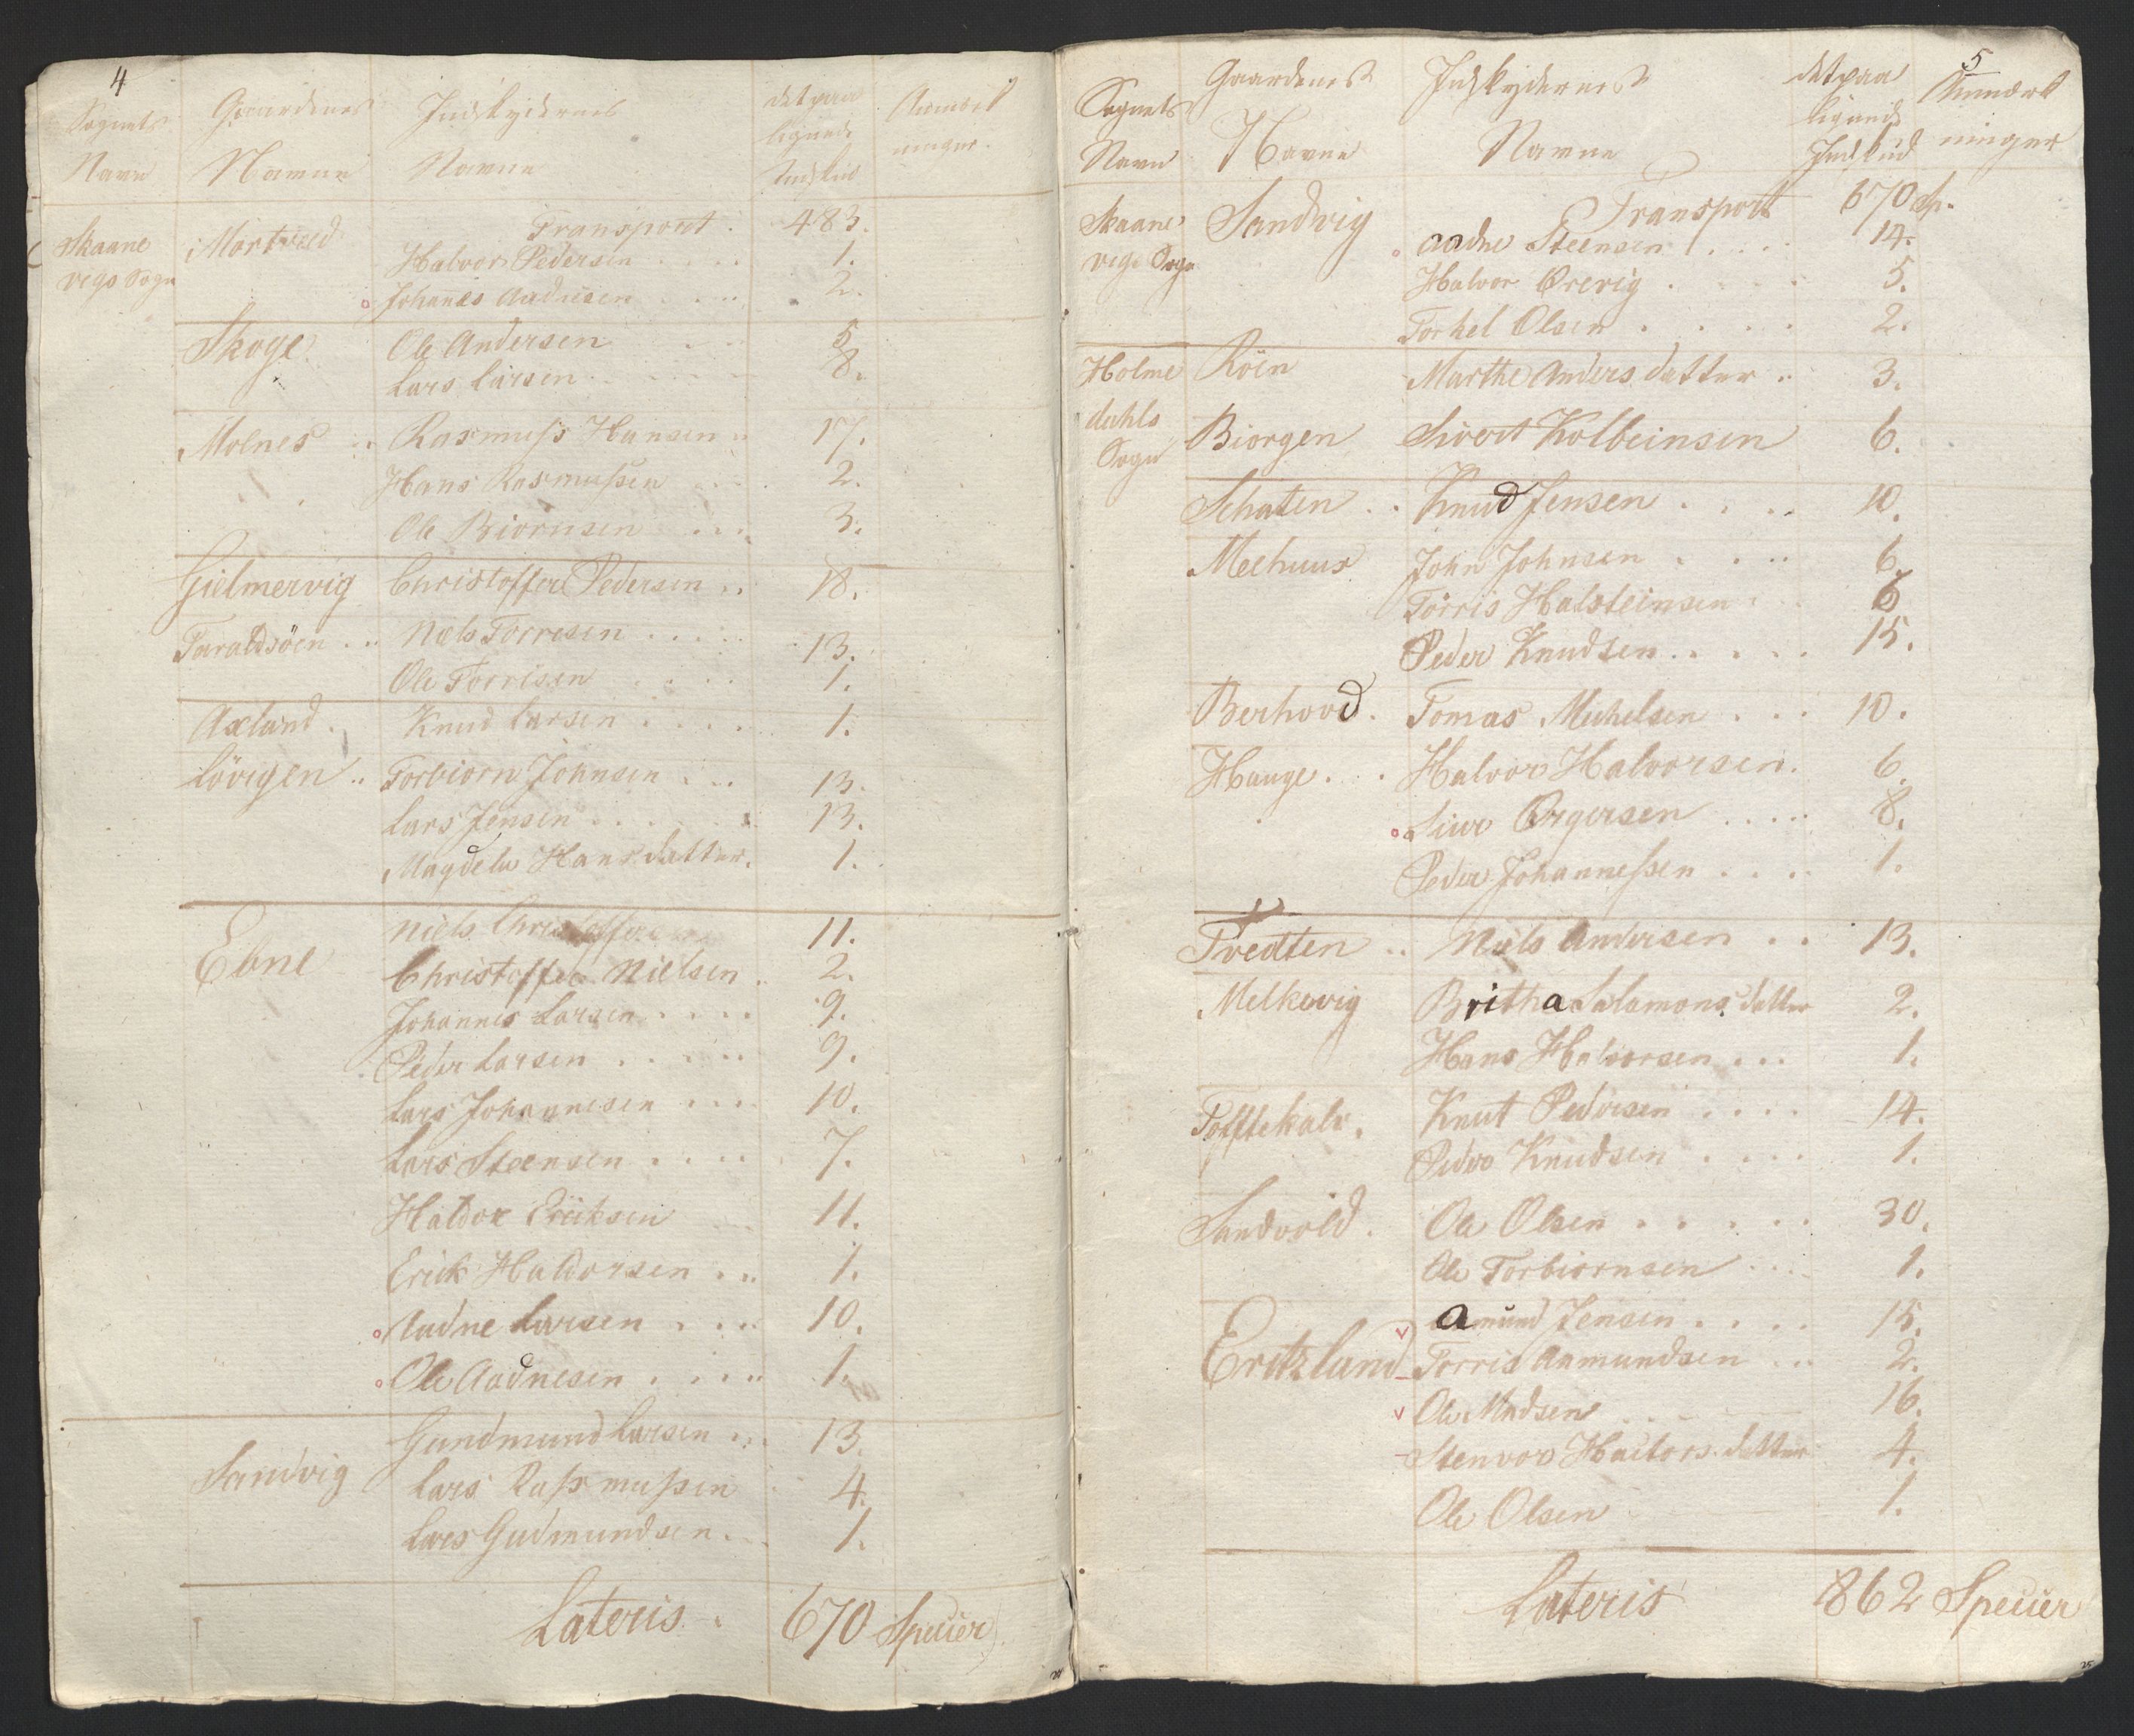 4
Sognets Navn
Gaardenes Navne
Indskydernes Navne
det paa lignede Indskud
Anmærkninger.
Skaanevigs Sogn
Mortveed Transport. 483.
Halvor Pedersen .... 1.
Johanes Aadnesen .... 2.
Skoge Ole Andersen 5
Lars Larsen 8.
Molnes .. Rasmuss Hansen .. 17.
Hans Rasmussen ... 2.
Ole Biornsen .... 3.
Gielmervig Christoffer Pedersen .. 18.
Taraldsöen ... Niels Torresen ..... 13.
Ole Törrisen .... 1.
Axland. Knud Larsen .... 1.
Lövigen .. Torbiorn Johnsen ... 13.
Lars Jensen ..... 13.
Magdela Hans datter. 1.
Ebne Niels Christoffer 11.
Christoffer Nielsen . 2.
Johannes Larsen .... 9.
Peder Larsen ..... 9.
Lars Johannesen .... 10.
Lars Steensen .... 7.
Haldor Ericksen 11.
Erick Haldorsen ... 1.
Aadne Larsen .... 10.
Ole Aadnesen ..... 1.
Sandvig Gundmund Larsen ... 13.
Lars Rassmussen 4.
Lars Gudmundsen ... 1.
Lateris . 670 Specier
5
Sognets Navn
Gaardenes Navne
Indskydernes Navne
det paa lignede Indskud
Anmærkninger
Skaanevigs Sogn
Sandvig Transport 670 Sp.
Aadne Steensen .... 14.
Halvor Ørevig .... 5.
Torkel Olsen .... 2.
Holmedahls Sogn
Röen Marthe Anders datter .. 3.
Biorgen Sivert Kolbeinsen 6.
Schaten .. Knud Jensen .... 10.
Meehuus John Johnsen .... 6.
Törris Halsteinsen .. 6
Peder Knudsen ..... 15.
Berhovd. Tomas Michelsen ... 10.
Hauge ... Halvor Halvorsen. 6.
Siur Ørgersen ..... 8.
Peder Johannessen .... 1.
Tvedten .. Niels Andersen .. 13.
Melkevig Britha Salamons datter 2.
Hans Halvorsen ... 1.
Tofftekalv. Knut Pedersen .... 14.
Peder Knudsen .... 1.
Sandvold. Ole Olsen ..... 30.
Ole Torbiornsen .... 1.
Eritzland Amund Jensen .... 15.
Torris Aamundsen ... 2.
Ole Madsen 16.
Stenvor Haltors datter 4.
Ole Olsen 1.
Lateris 862 Specier